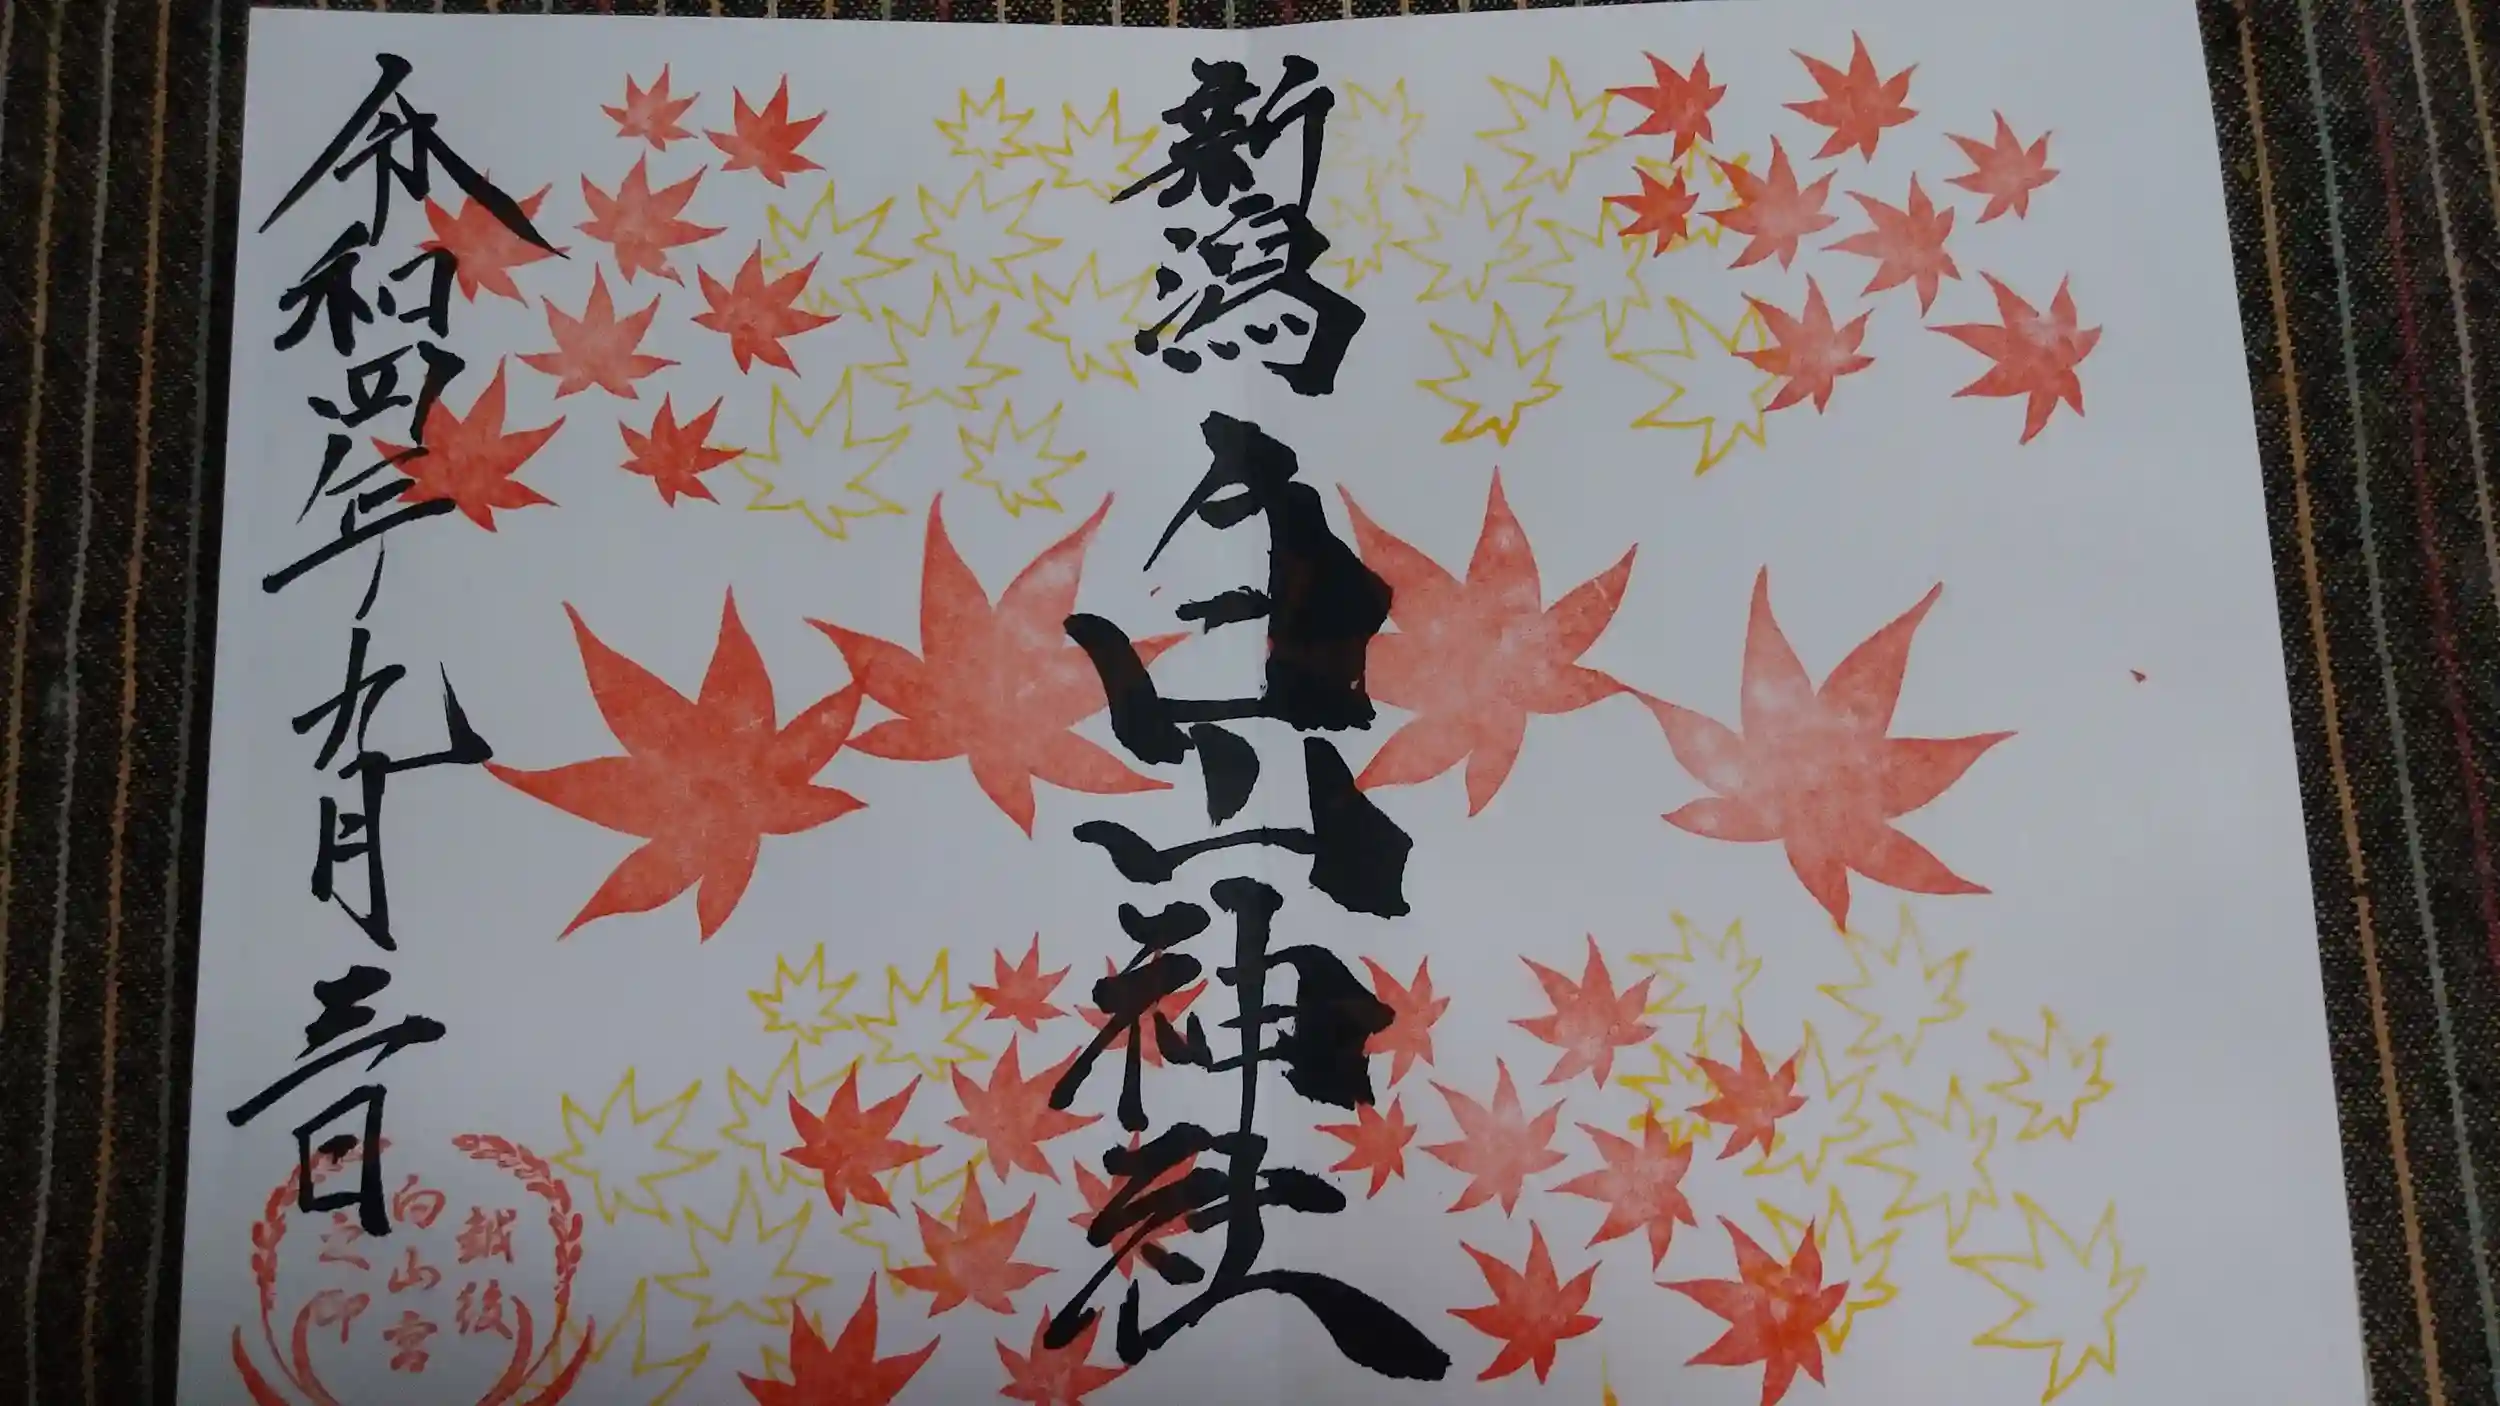 新潟白山神社
令和四年九月三日
越後
白山宮
之印